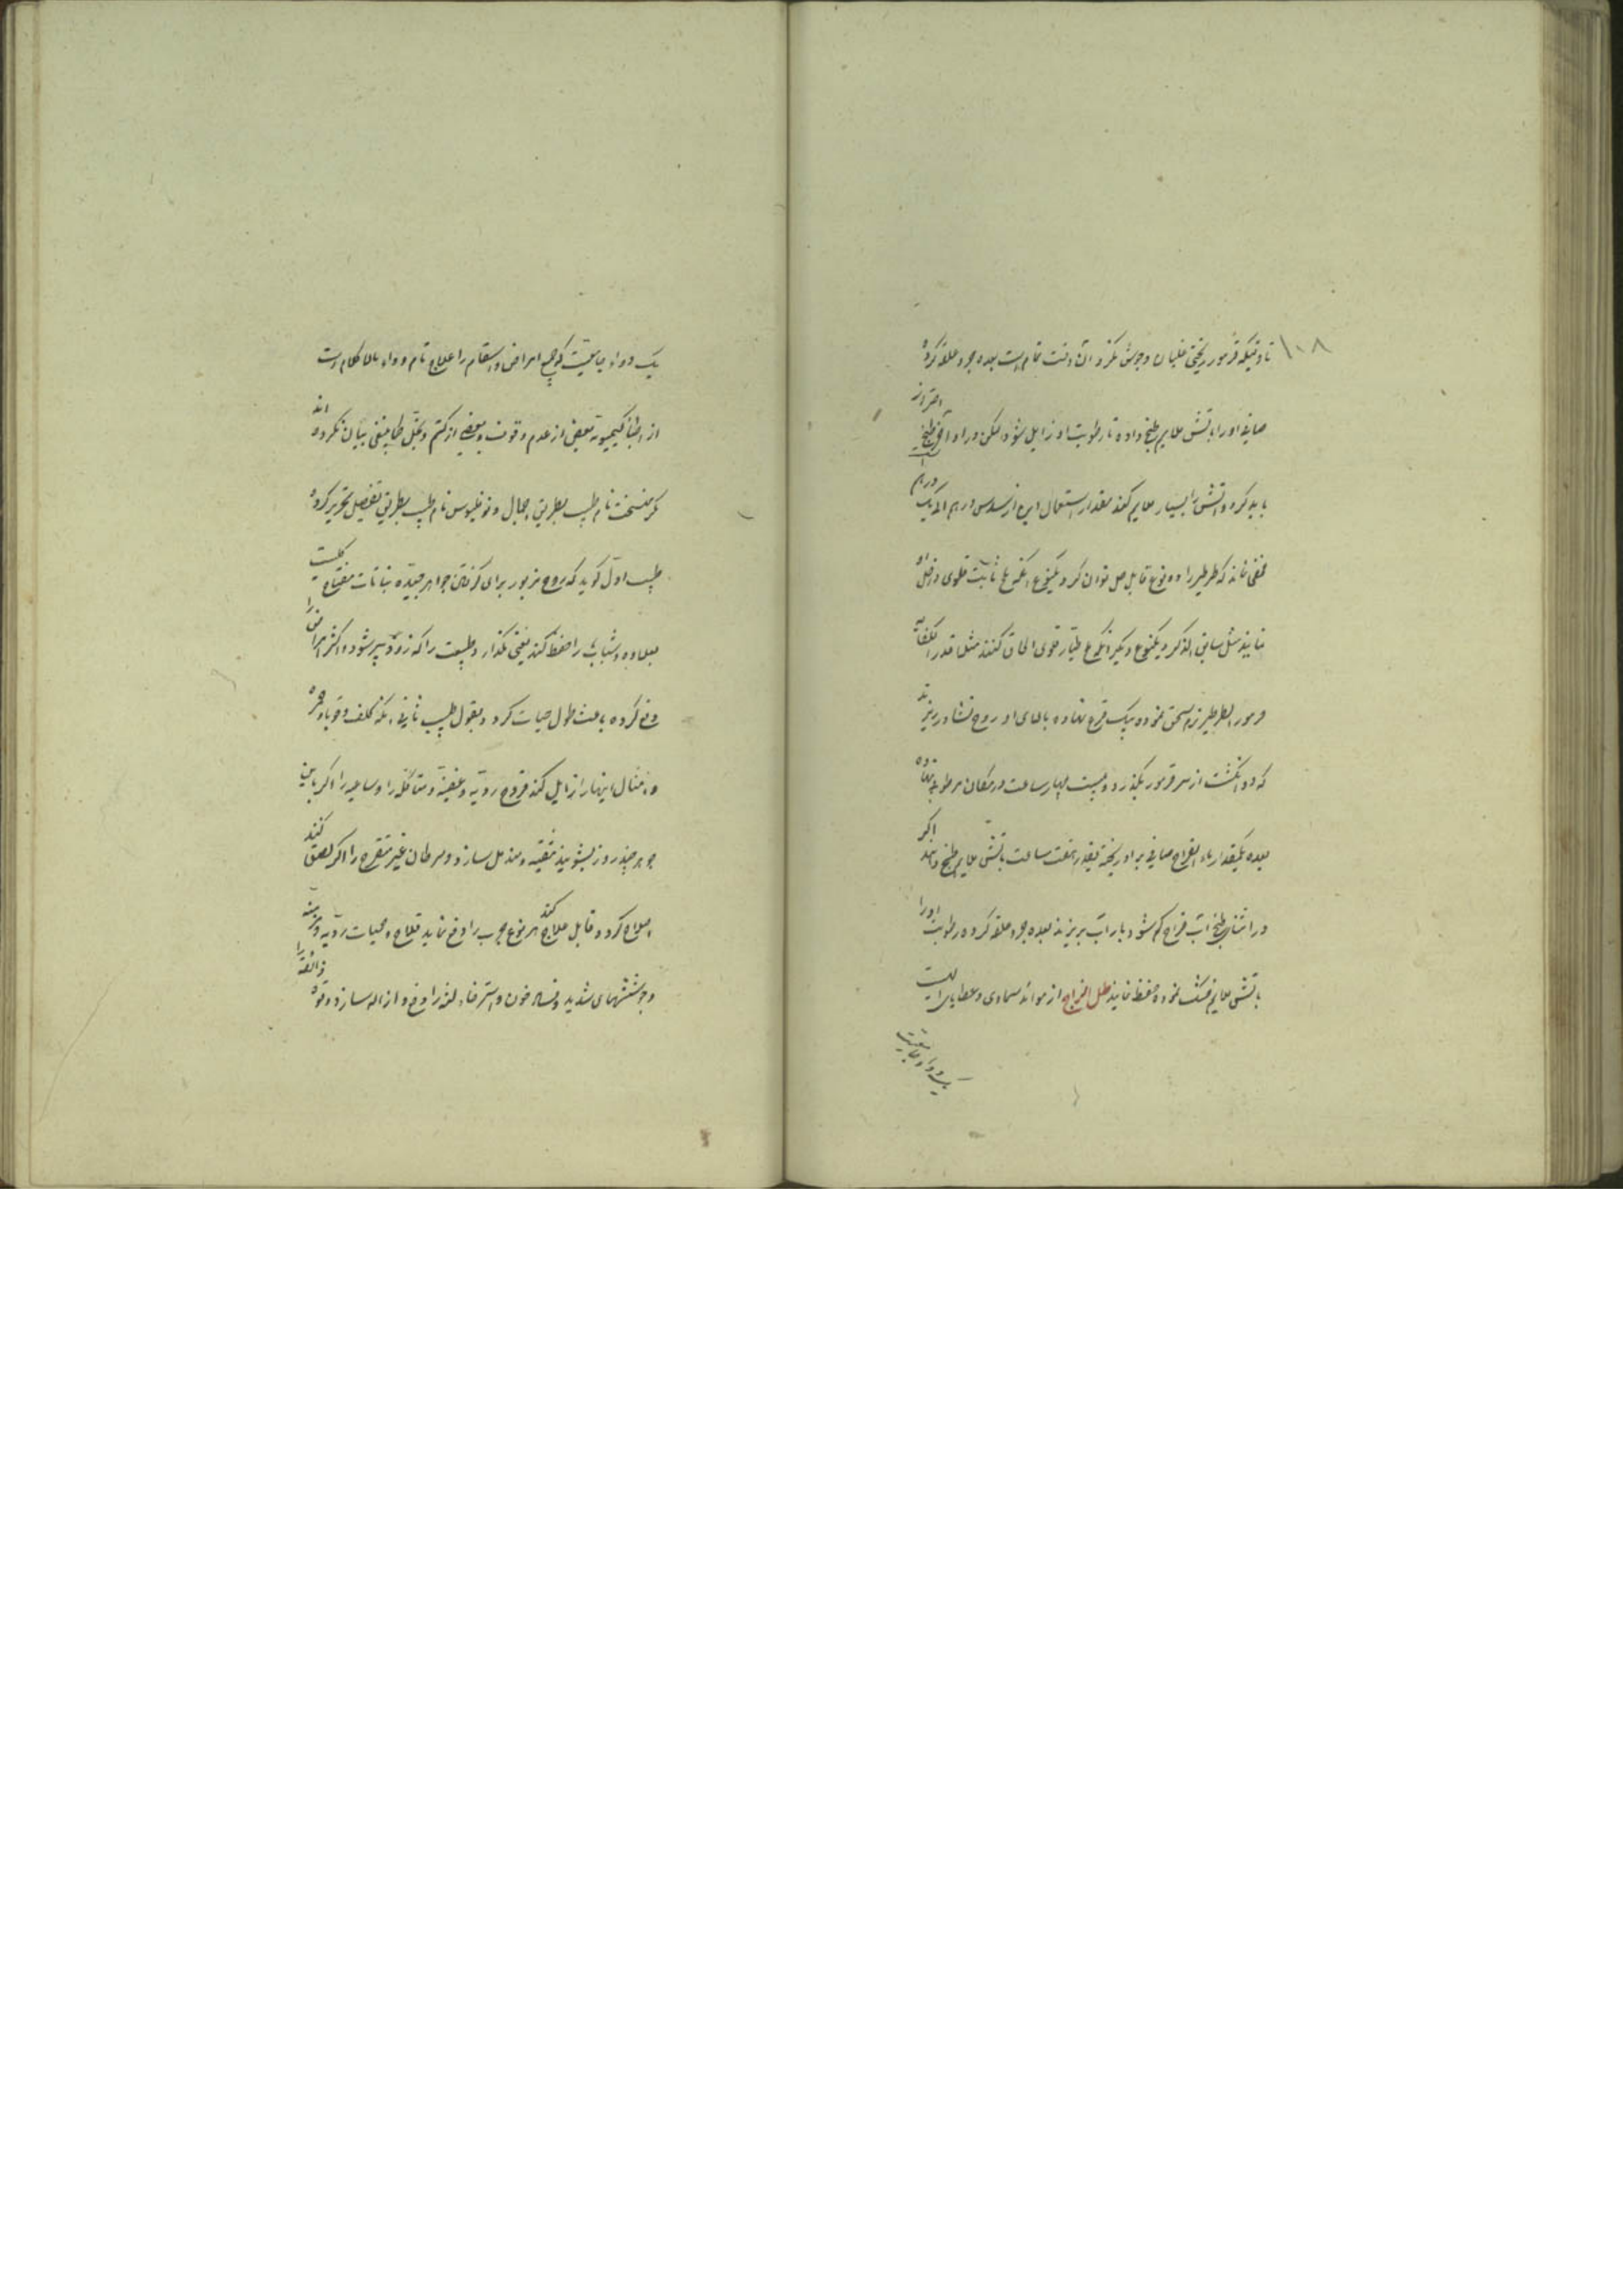 ۱۰۸
تا وقتیکه قرمور ریختی غلیان و جوش نکرد آن وقت تمام است بعده بجر و علقه کرده
صافی او را باتش ملایم طبخ داده تا رطوبت او زایل شود لیکن در اواخر طبخ احتراز
باید کرد و اتش را بسیار ملایم کند مقدار استعمال این از سدس درهم الی یک درهم
مخفی نماند که طرطیر را دو نوع قابل حل توان کرد یکنوع انکه ملح ثابت قلوی داخل او
نمایند مثل سابق الذکر و یکنوع دیگر انکه ملح طیار قوی الحاق کنند مثلا قدر الکفایه
قرمور الطرطیر نرم سحق نموده بیک قرع نهاده بالای او روح نشادر بریزند
که دو انکشت از سر قرمور بگذرد و بیست چهار ساعت در مکان مرطوبه نهاده
بعده یکمقدار ماء القراح صافی بر او ریخته بقدر هفت ساعت باتش ملایم طبخ دهند اکر
در اثنای طبخ آب قراح کم شود باز آب بریزند بعده بجر و علقه کرده رطوبت اورا
باتش ملایم خشک نموده حفظ نمایند حل المزاج از موائد سماوی و عطایای الهیست
یک دواء جامعیت
یک دواء جامعیت که جمیع امراض و اسقام را علاج تام و دواء بالا کلام است
از اطباء کیمیویه بعضی از عدم وقوف و بعضی از کتم و بخل کما ینبغی بیان نکرده اند
مکر منسخت نام طبیب بطریق اجمال و نوفلیوس نام طبیب بطریق تفصیل تحریر کرده
طبیب اول کوید که روح مزبور برای کرفتن جواهر جیده نباتات مفتاح کلیست
بعلاوه شباب را حفظ کند یعنی نکذارد طبیعت را که زود پیر شود و اکثر امراض را
دفع کرده باعث طول حیات کردد بقول طبیب ثانی انکه کلف و قوبا و جمره
و امثال اینها را زایل کند قروح ردیه و عفینه و متاکله را و ساعیه را اکر باین
جوهر چند روز بشویند تنقیه و مندمل سازد و سرطان غیر متقرح را اکر لصق کنند
اصلاح کرده قابل علاج کند هر نوع جرب را دفع نماید قلاع و حمیات ردیه و مزمنه
و جوششهای شدید و فساد خون و استرخاء لثه را دفع و ازاله سازد و قوه ذائقه را